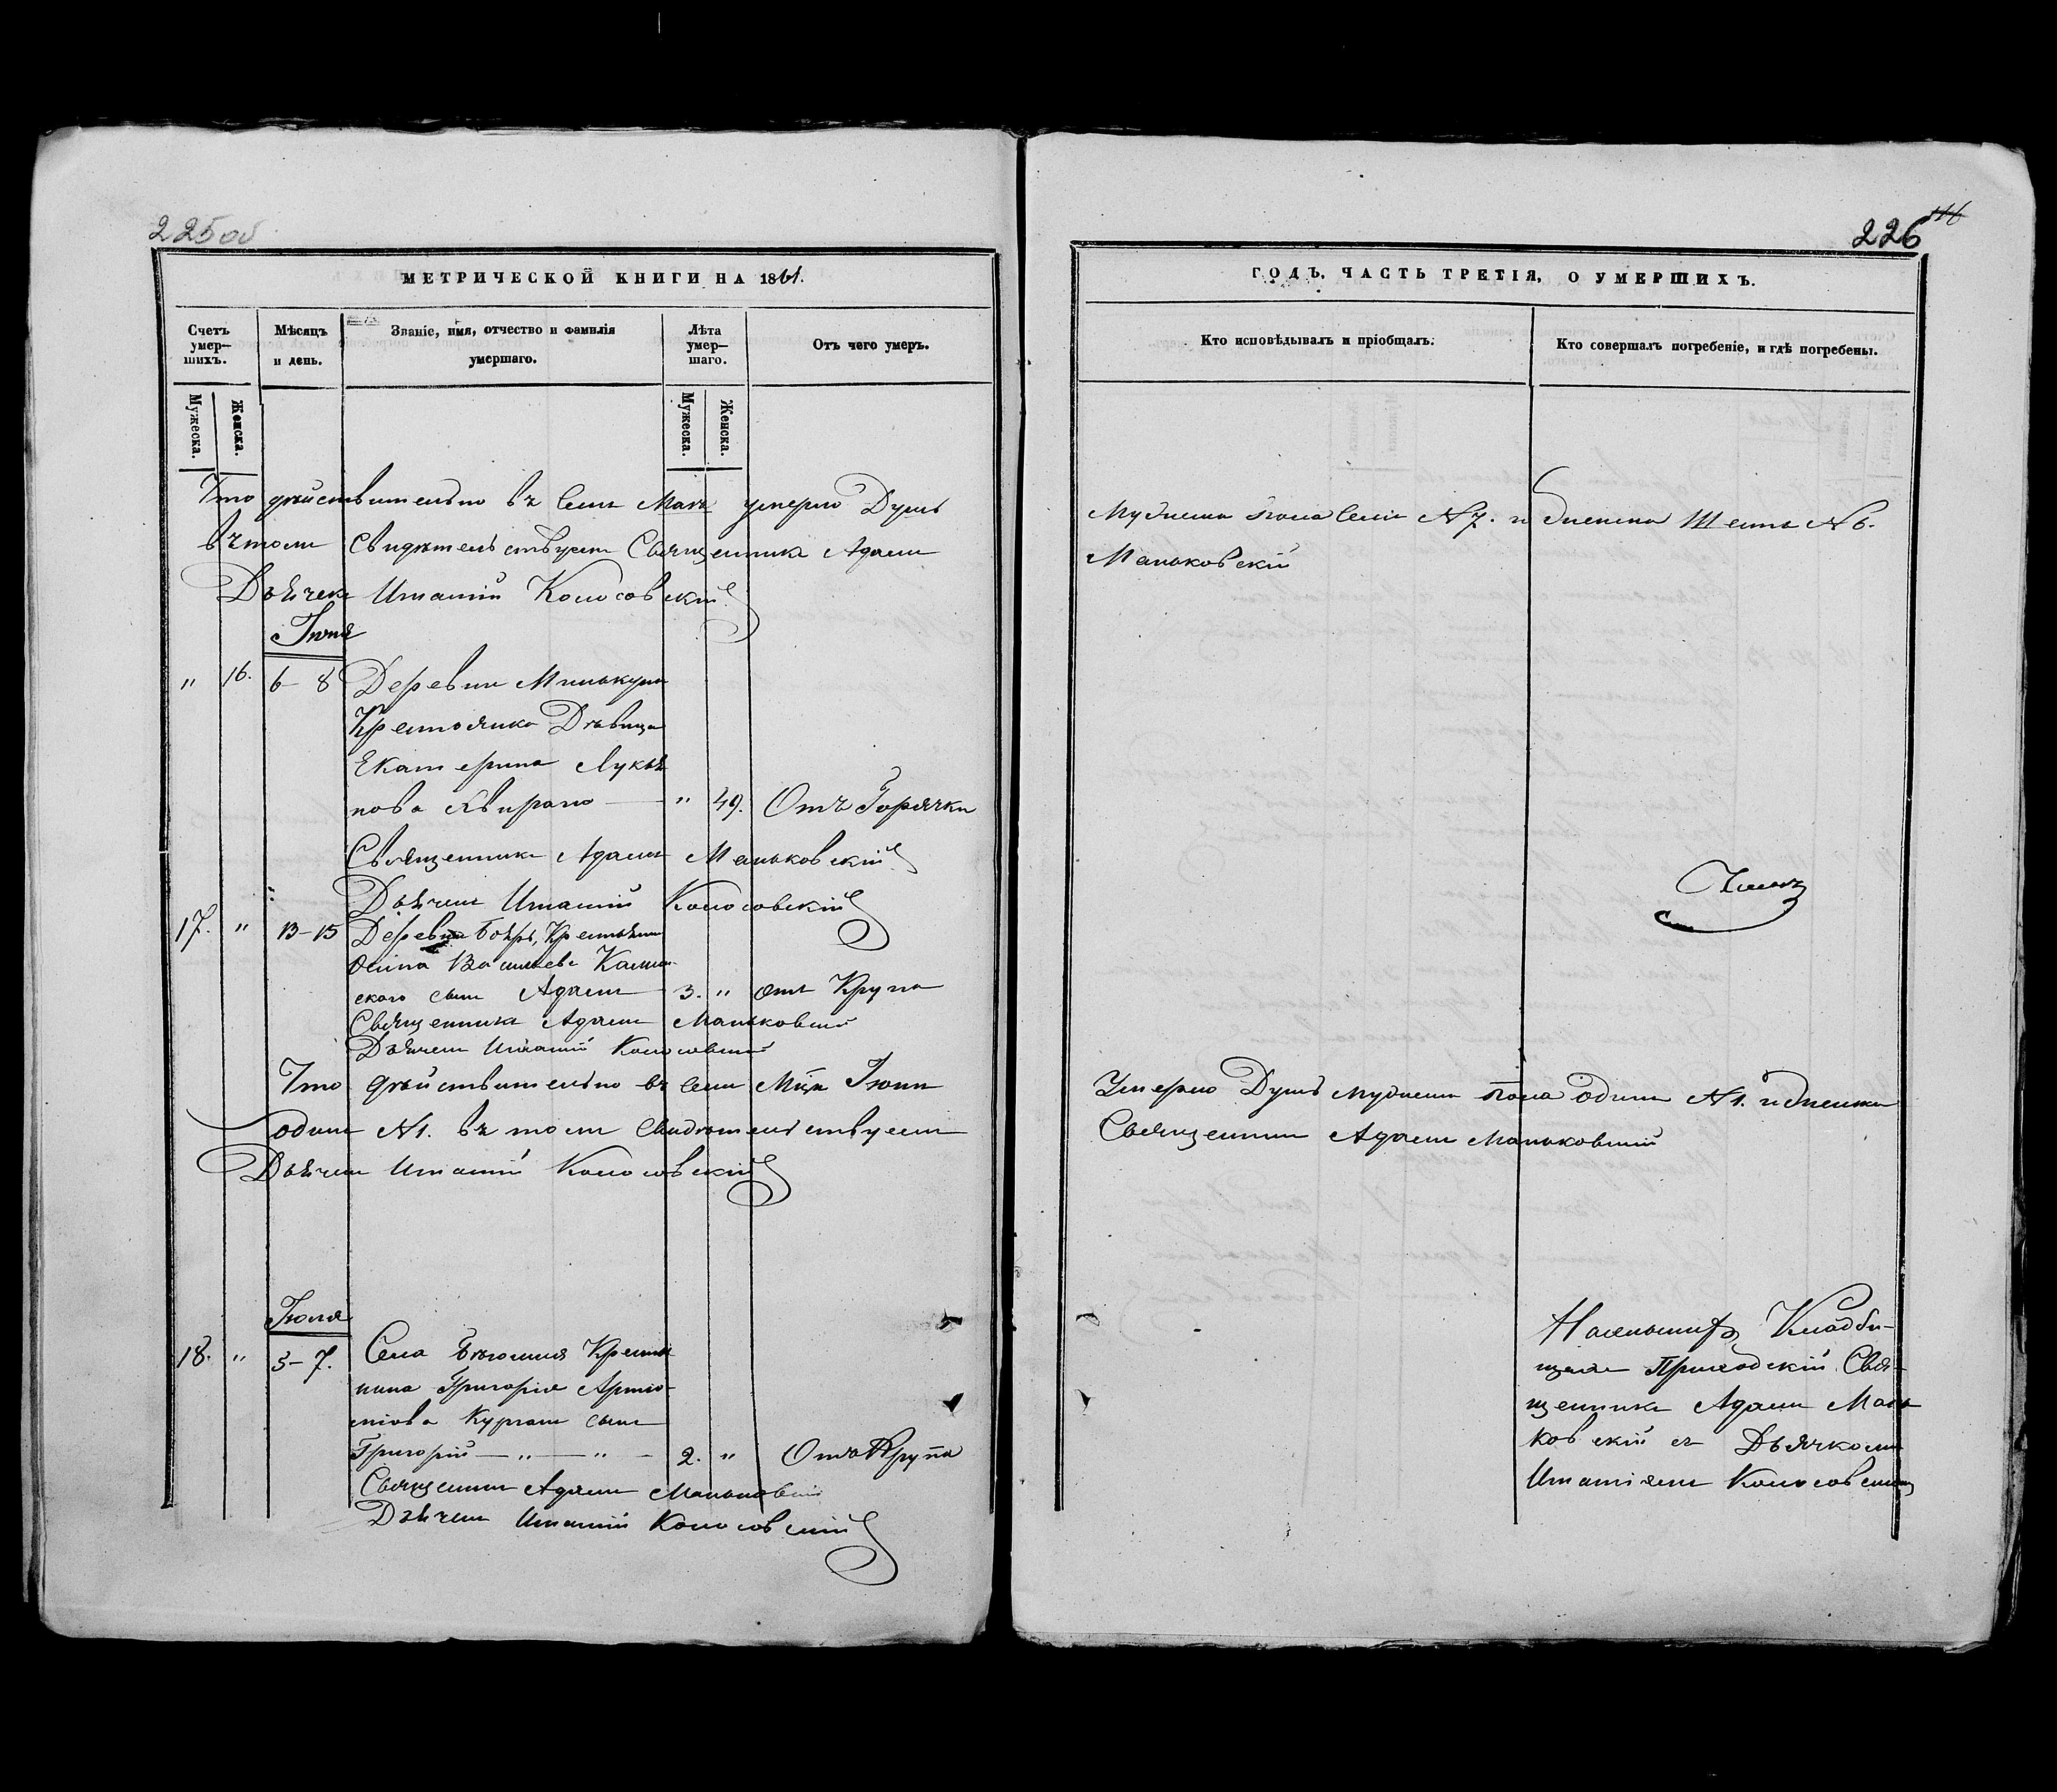 225 об
МЕТРИЧЕСКОЙ КНИГИ НА 1861.
Счетъ умер-шихъ.
Мѣсяцъ и день.
Званіе, имя, отчество и фамилія умершаго.
Лѣта умер-шаго.
Отъ чего умеръ.
Мужеска.
Женска.
Мужеска.
Женска.
Что дѣйствительно въ Семъ умерло Душъ
въ томъ Свидѣтельствуемъ Священникъ Адамъ
Дьячекъ Игнатій Колосовскій
Іюня
" 16. 6-8 Деревни
Крестьянка Дѣвица
Екатерина Лукья
нова — " 49. Отъ Горячки
Священникъ Адамъ Маньковскій
Дьячекъ Игнатій Колосовскій
17. " 13-15 Деревни Крестьянина
Васильева
скаго сынъ Адамъ 3. " Отъ Крупа
Священникъ Адамъ Маньковскій
Дьячекъ Игнатій Колосовскій
Что дѣйствительно въ семъ Мцѣ Іюнѣ
одинъ №1. въ томъ Свидѣтельствуемъ
Дьячекъ Игнатій Колосовскій
Іюля
18. " 5-7. Села Крестья
нина Григорія Артіо-
міова Курганъ сынъ
Григорій — " — " — 2. " Отъ Крупа
Священникъ Адамъ Маньковскій
Дьячекъ Игнатій Колосовскій
226
116
ГОДЪ, ЧАСТЬ ТРЕТІЯ, О УМЕРШИХЪ.
Кто исповѣдывалъ и пріобщалъ.
Кто совершалъ погребеніе, и гдѣ погребены.
Мужеска пола Семь №7. и Женска Шесть №6.
Маньковскій
Умерло Душъ мужеска пола одинъ №1. и женска
Священникъ Адамъ Маньковскій
Кладби-
щѣ Приходскій Свя-
щенникъ Адамъ Мань
ковскій съ Дьячкомъ
Игнатіемъ Колосовскимъ